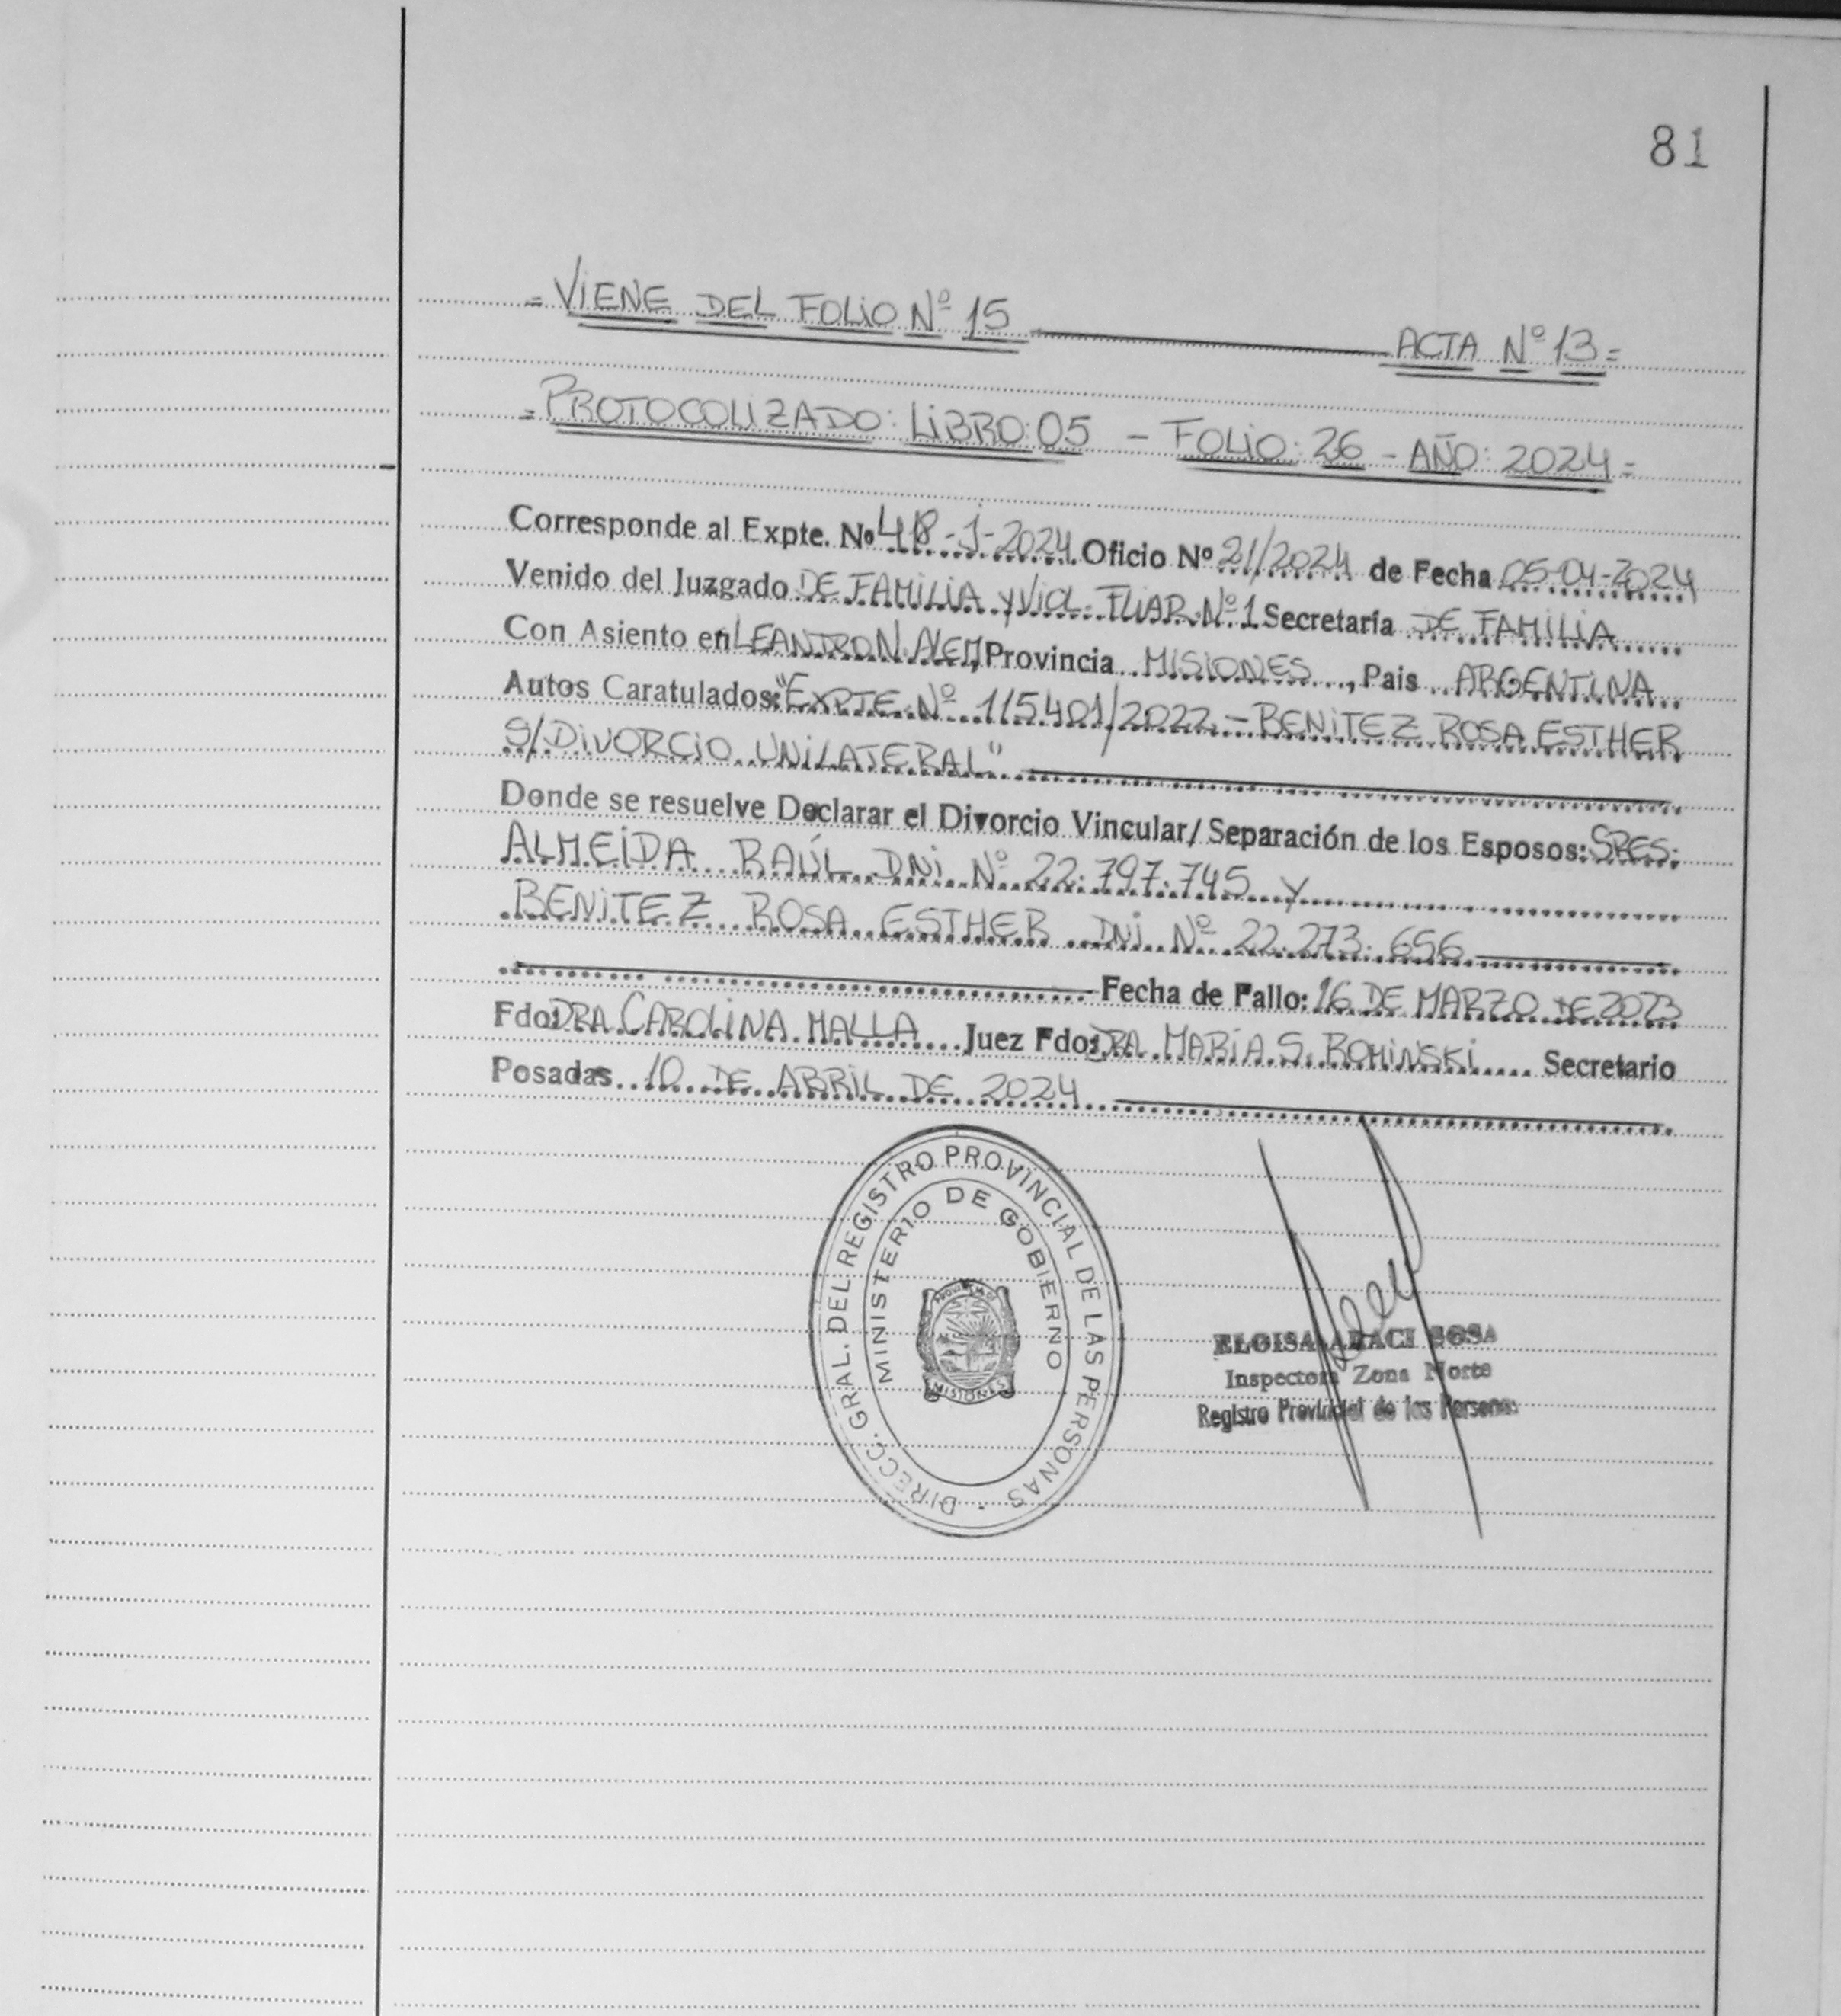 81
= VIENE DEL FOLIO Nº 15 ACTA Nº 13 =
= PROTOCOLIZADO: LIBRO: 05 - FOLIO: 26 - AÑO: 2024 =
Corresponde al Expte. Nº 418-J-2024 Oficio Nº 21/2024 de Fecha 05-04-2024
Venido del Juzgado DE FAMILIA y VIOL. FLIAR. Nº 1 Secretaría DE FAMILIA
Con Asiento en LEANDRO N. ALEM, Provincia MISIONES, Pais ARGENTINA
Autos Caratulados: "EXPTE Nº 115401/2022 - BENITEZ ROSA ESTHER
S/DIVORCIO UNILATERAL"
Donde se resuelve Declarar el Divorcio Vincular/Separación de los Esposos: SRES.
ALMEIDA RAÚL DNI Nº 22.797.745 y
BENITEZ ROSA ESTHER DNI Nº 22.273.656
Fecha de Fallo: 16 DE MARZO DE 2023
Fdo: DRA CAROLINA MALLA Juez Fdo: DRA. MARIA S. ROMINSKI Secretario
Posadas 10 DE ABRIL DE 2024
DIRECC. GRAL. DEL REGISTRO PROVINCIAL DE LAS PERSONAS
MINISTERIO DE GOBIERNO
MISIONES
ELOISA ARACI SOSA
Inspectora Zona Norte
Registro Provincial de las Personas